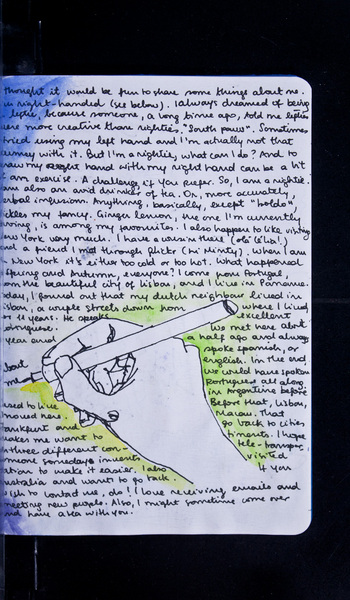 thought it would be fun to share some things about me.
right-handed (see below). I always dreamed of being
leftie, because someone, a long time ago, told me lefties
were more creative than righties. "South paws". Sometimes
tried using my left hand and I'm actually not that
with it. But I'm a rightie, what can I do? And to
draw my right hand with my right hand can be a bit
of an exercise. A challenge if you prefer. So, I am a rightie.
am also an avid drinker of tea. Or, more accurately,
herbal infusion. Anything, basically, except
tickles my fancy. Ginger lemon, the one I'm currently
is among my favourites. I also happen to like visiting
New York very much. I have a cousin there (olá Célia!)
and a friend I met through flickr (hi Minty). When I am
New York it's either too cold or too hot. What happened
Spring and Autumn, everyone? I come from Portugal,
from the beautiful city of Lisbon, and I live in
today, I found out that my dutch neighbour lived in
Lisbon, a couple streets down from where I lived
for 11 years. He speaks excellent
portuguese. We met here about
year and a half ago and always
spoke spanish, or
english. In the end,
we could have spoken
Portuguese all along.
in Argentina before
used to live Before that, Lisbon,
moved here. Macau. That
Frankfurt and go back to cities
makes me want to
in three different con- tinents. I hope
someday invents tele-transpor-
tation to make it easier. I also visited
Australia and want to go back
wish to contact me, do! I love receiving emails and
meeting new people. Also, I might sometime come over
and have a tea with you.